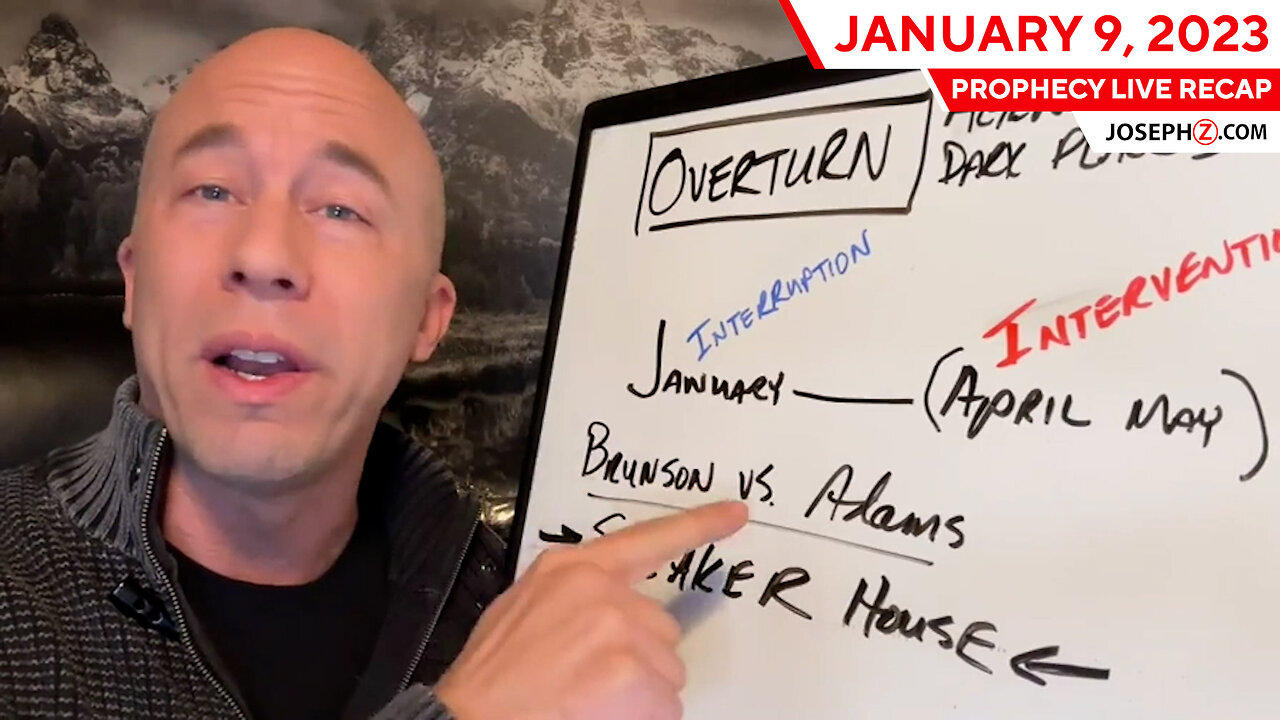 JANUARY 9, 2023
PROPHECY LIVE RECAP
JOSEPHZ.COM
OVERTURN
DARK
INTERRUPTION
JANUARY — (APRIL MAY)
BRUNSON VS. Adams
HOUSE